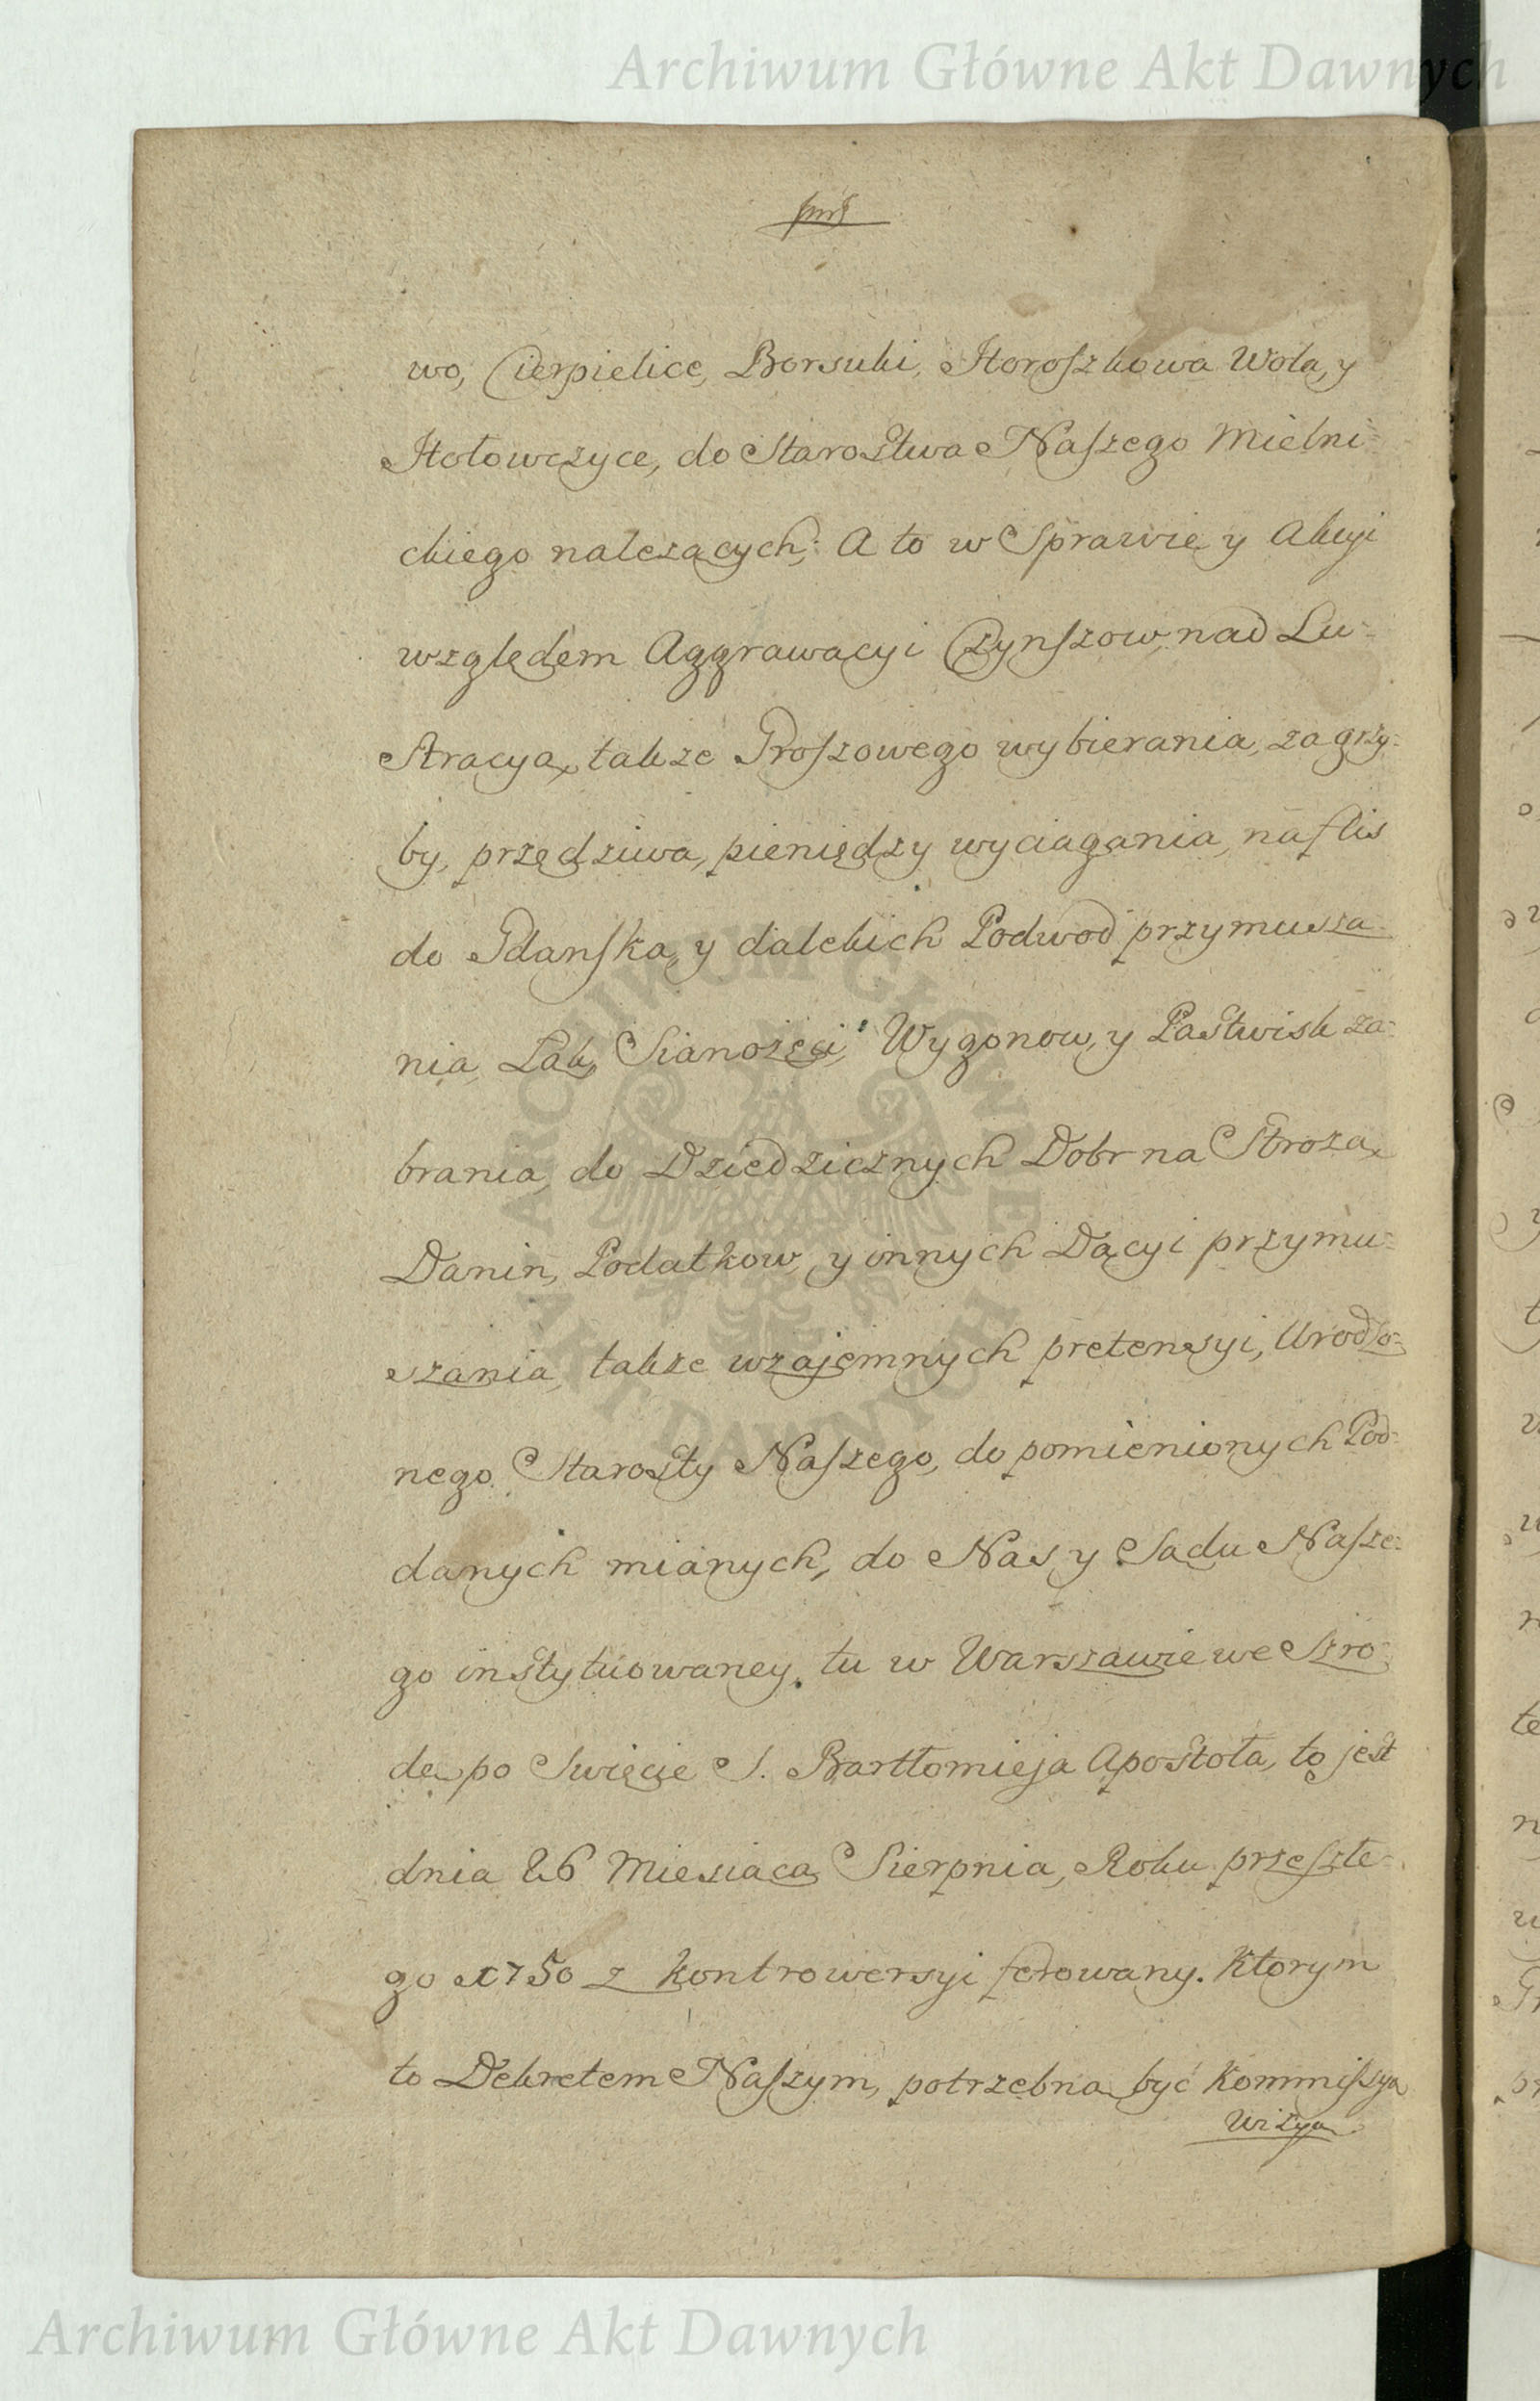 Archiwum Główne Akt Dawnych
wo, Cierpielice, Borsuki, Horoszkowa Wola, y
Hołowczyce, do Starostwa Naszego Mielni=
ckiego należących; A to w Sprawie y Akcyi
względem Aggrawacyi Czynszow, nad Lu=
stracyą, także Groszowego wybierania, za grzy=
by, przędziwa, pieniędzy wyciągania, na flis
do Gdańska, y dalekich Podwod przymusza=
nia, Łąk, Sianożęci, Wygonow, y Pastwisk za=
brania, do Dziedzicznych Dobr na Strożą,
Danin, Podatkow, y innych Dacyi przymu=
szania, także wzajemnych pretensyi, Urodzo=
nego Starosty Naszego, do pomienionych Pod=
danych mianych, do Nas y Sądu Nasze=
go instytuowaney, tu w Warszawie we Szro=
dę po Swięcie S. Bartłomieja Apostoła, to jest
dnia 26 Miesiąca Sierpnia, Roku przeszłe=
go 1750 z kontrowersyi ferowany. Ktorym
to Dekretem Naszym, potrzebną być Kommissyą
Wizyą
ARCHIWUM GŁÓWNE
AKT DAWNYCH
Archiwum Główne Akt Dawnych